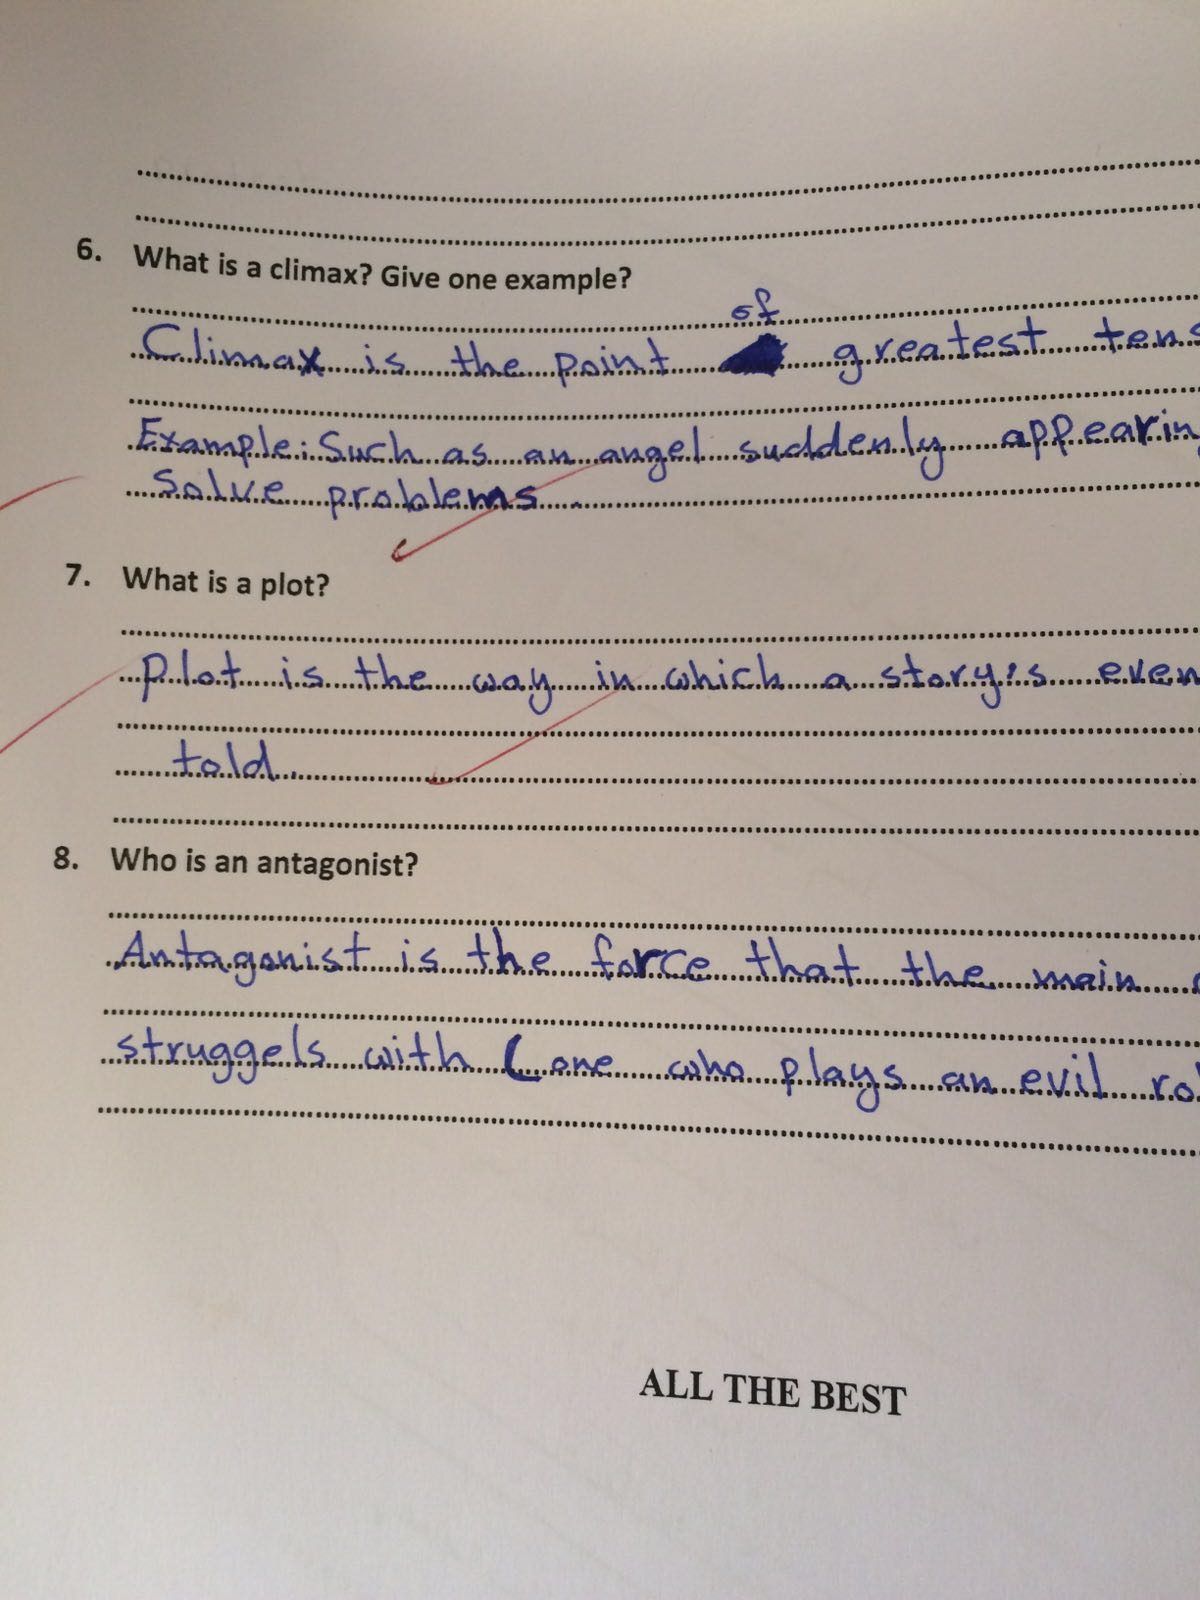 6. What is a climax? Give one example?
of
Climax is the point greatest tens
Example: Such as an angel suddenly appearin
Solve problems.
7. What is a plot?
Plot is the way in which a story's even
told.
8. Who is an antagonist?
Antagonist is the force that the main
struggels with (one who plays an evil rol
ALL THE BEST